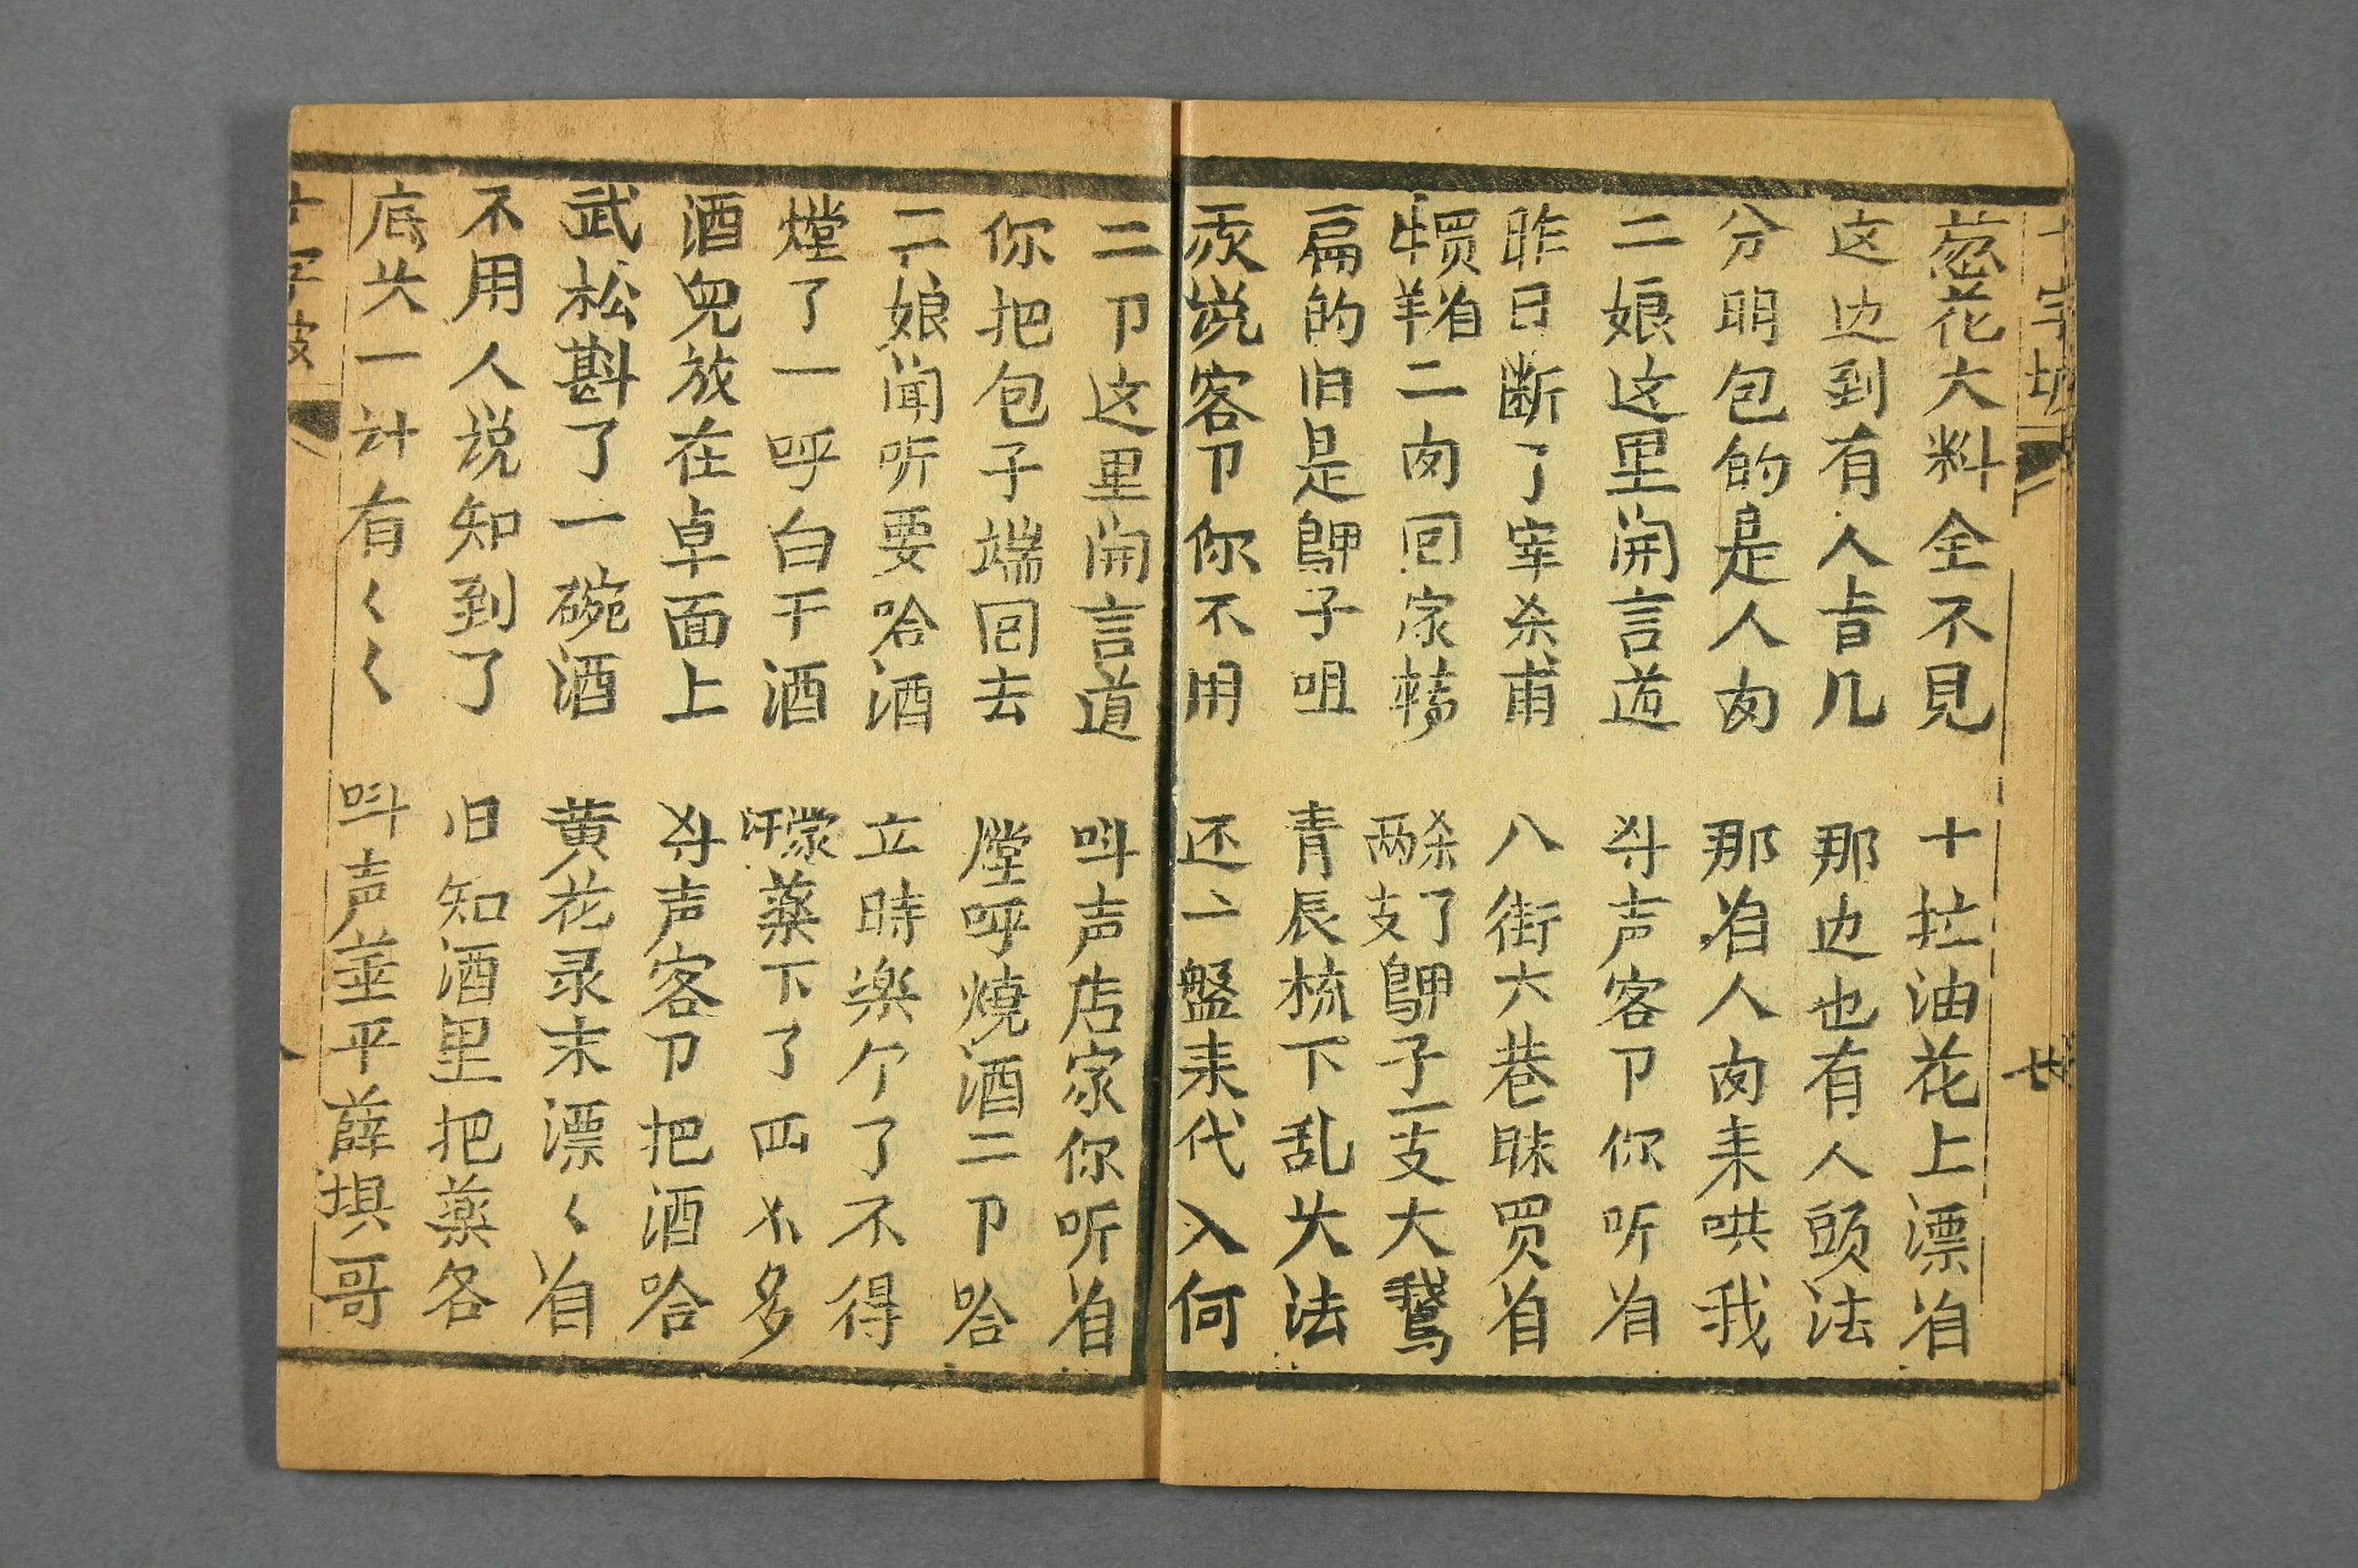 十字坡
廿
葱花大料全不見 十拉油花上漂自
这边到有人㫖几 那边也有人頭法
分明包的是人肉 那自人肉来哄我
二娘这里開言道 叫声客卩你听自
昨日断了宰杀甫 八街六巷昧買自
牛羊買自二肉回家轉 杀了两支鴨子一支大鵝
扁的旧是鴨子咀 青辰梳下乱头法
灰说客卩你不用 还一盤来代入何
二卩这里開言道 叫声店家你听自
你把包子端回去 膛呼燒酒二卩哈
二娘闻听要哈酒 立時楽个了不得
熞了一呼白干酒 蒙汗薬下了四不多
酒兜放在卓面上 叫声客卩把酒哈
武松斟了一碗酒 黄花录末漂〱自
不用人说知到了 旧知酒里把薬各
底头一计有〱〱 叫声董平薛埧哥
十字坡